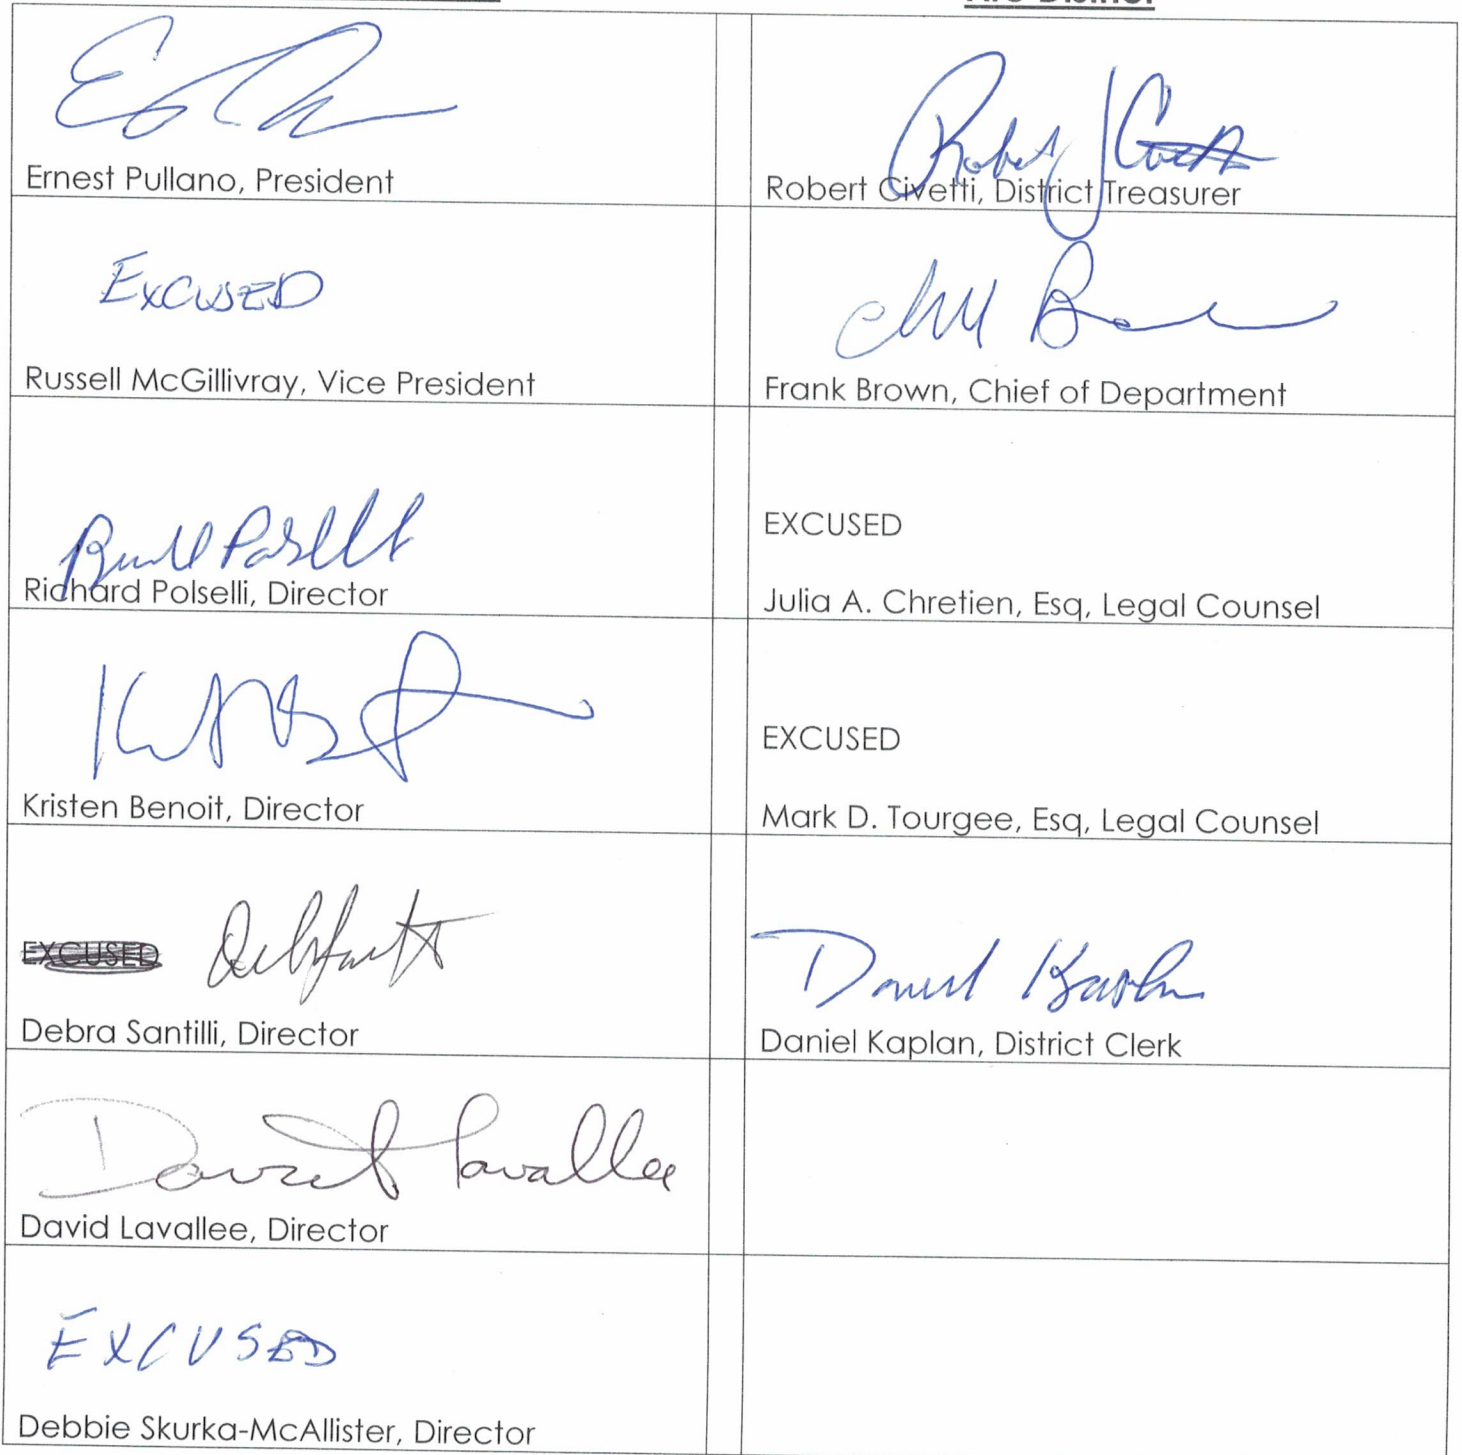 Fire District
Ernest Pullano, President
Robert J Civetti
Robert Civetti, District Treasurer
EXCUSED
Russell McGillivray, Vice President
Frank Brown, Chief of Department
Richard Polselli, Director
EXCUSED
Julia A. Chretien, Esq, Legal Counsel
Kristen Benoit, Director
EXCUSED
Mark D. Tourgee, Esq, Legal Counsel
EXCUSED
Debra Santilli, Director
Daniel Kaplan
Daniel Kaplan, District Clerk
David Lavallee
David Lavallee, Director
EXCUSED
Debbie Skurka-McAllister, Director